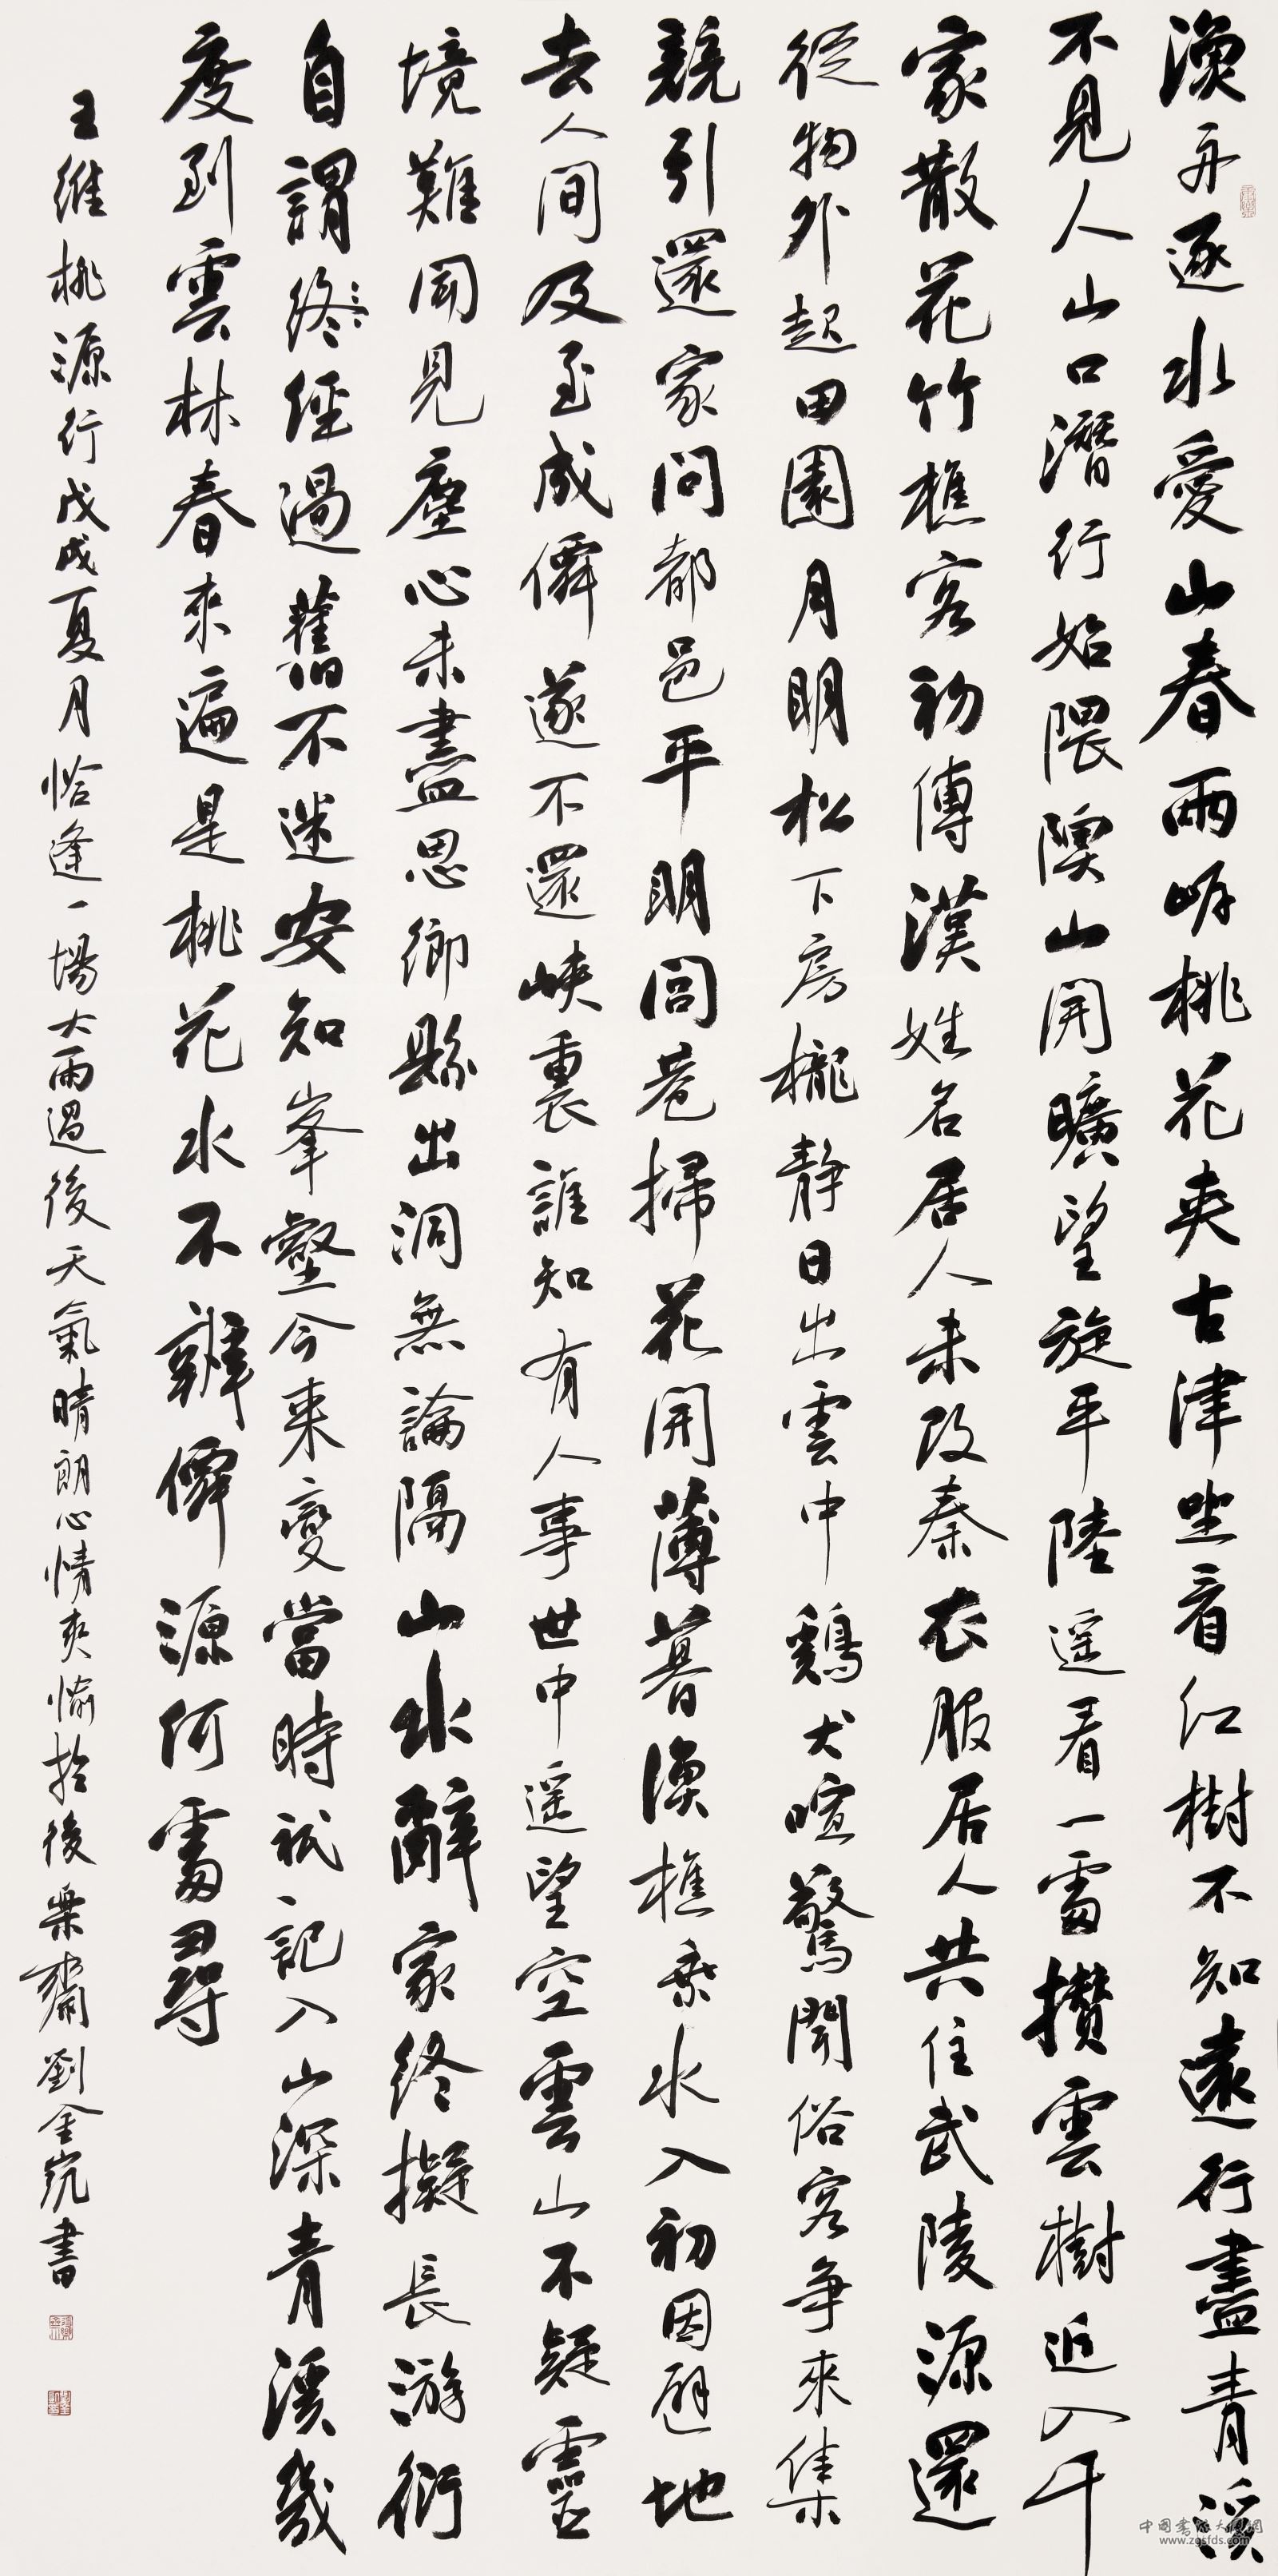 漁舟逐水愛山春兩岸桃花夾古津坐看紅樹不知遠行盡青溪
不見人山口潛行始隈隩山開曠望旋平陸遥看一處攢雲樹近入千
家散花竹樵客初傳漢姓名居人未改秦衣服居人共住武陵源還
從物外起田園月明松下房櫳靜日出雲中鷄犬喧驚聞俗客爭來集
競引還家問都邑平明閭巷掃花開薄暮漁樵乘水入初因避地
去人間及至成僊遂不還峽裏誰知有人事世中遥望空雲山不疑靈
境難聞見塵心未盡思鄉縣出洞無論隔山水辭家終擬長游衍
自謂終經過舊不迷安知峯壑今来變當時衹記入山深青溪幾
度到雲林春來遍是桃花水不辨僊源何處尋
王維桃源行戊戌夏月恰逢一場大雨過後天氣晴朗心情爽愉於後樂齋劉金凱書
www.zgsfds.com